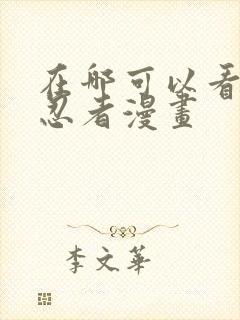 在哪可以看
忍者漫畫
李文華